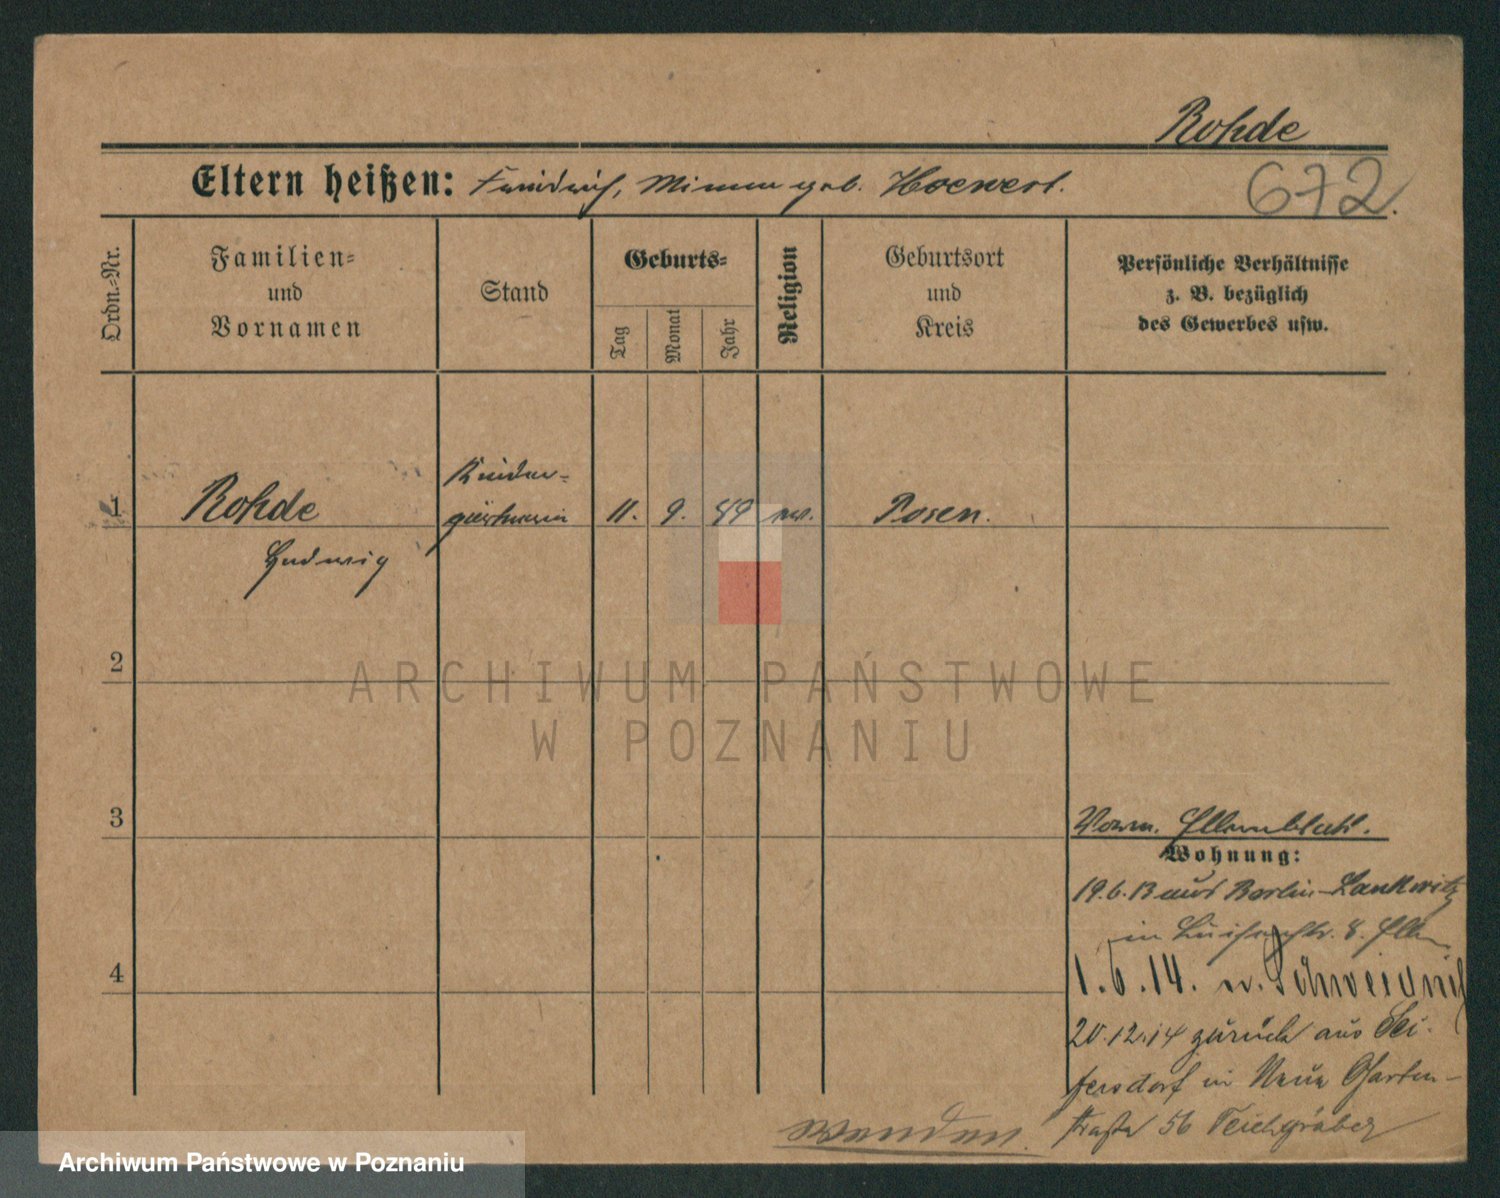 Rohde
Eltern heißen: Friedrich, Minna geb. Hoewert.
672.
Ordn.=Nr.
Familien=
und
Vornamen
Stand
Geburts=
Tag
Monat
Jahr
Religion
Geburtsort
und
Kreis
Persönliche Verhältnisse
z. B. bezüglich
des Gewerbes usw.
1
Rohde
Kinder-
gärtnerin
11. 9. 89 ev.
Posen.
Hedwig
2
ARCHIWUM PAŃSTWOWE
W POZNANIU
3
Vorm.
Wohnung:
19.6.13 aus Berlin-Lankwitz
in Luisenstr. 8.
4
1.6.14. n. Schweidnitz
20.12.14 zurück aus Sei-
fersdorf in Neue Garten-
straße 56 Teichgräber
wenden.
Archiwum Państwowe w Poznaniu